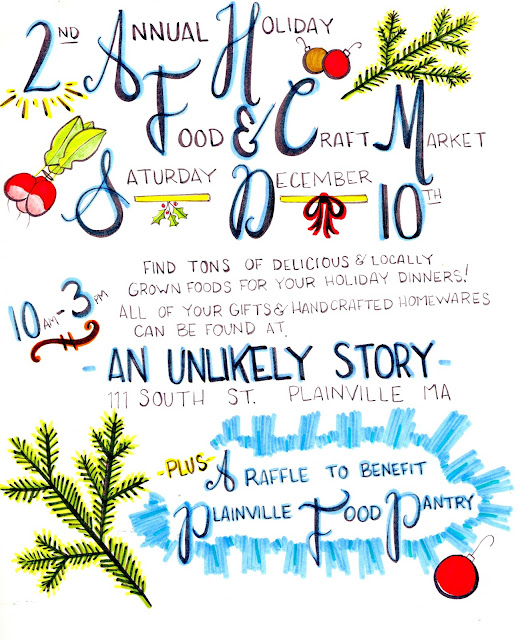 2ND ANNUAL HOLIDAY
FOOD & CRAFT MARKET
SATURDAY DECEMBER 10TH
FIND TONS OF DELICIOUS & LOCALLY
GROWN FOODS FOR YOUR HOLIDAY DINNERS!
10AM-3PM
ALL OF YOUR GIFTS & HANDCRAFTED HOMEWARES
CAN BE FOUND AT.
- AN UNLIKELY STORY -
111 SOUTH ST. PLAINVILLE MA
-PLUS- A RAFFLE TO BENEFIT
PLAINVILLE FOOD PANTRY